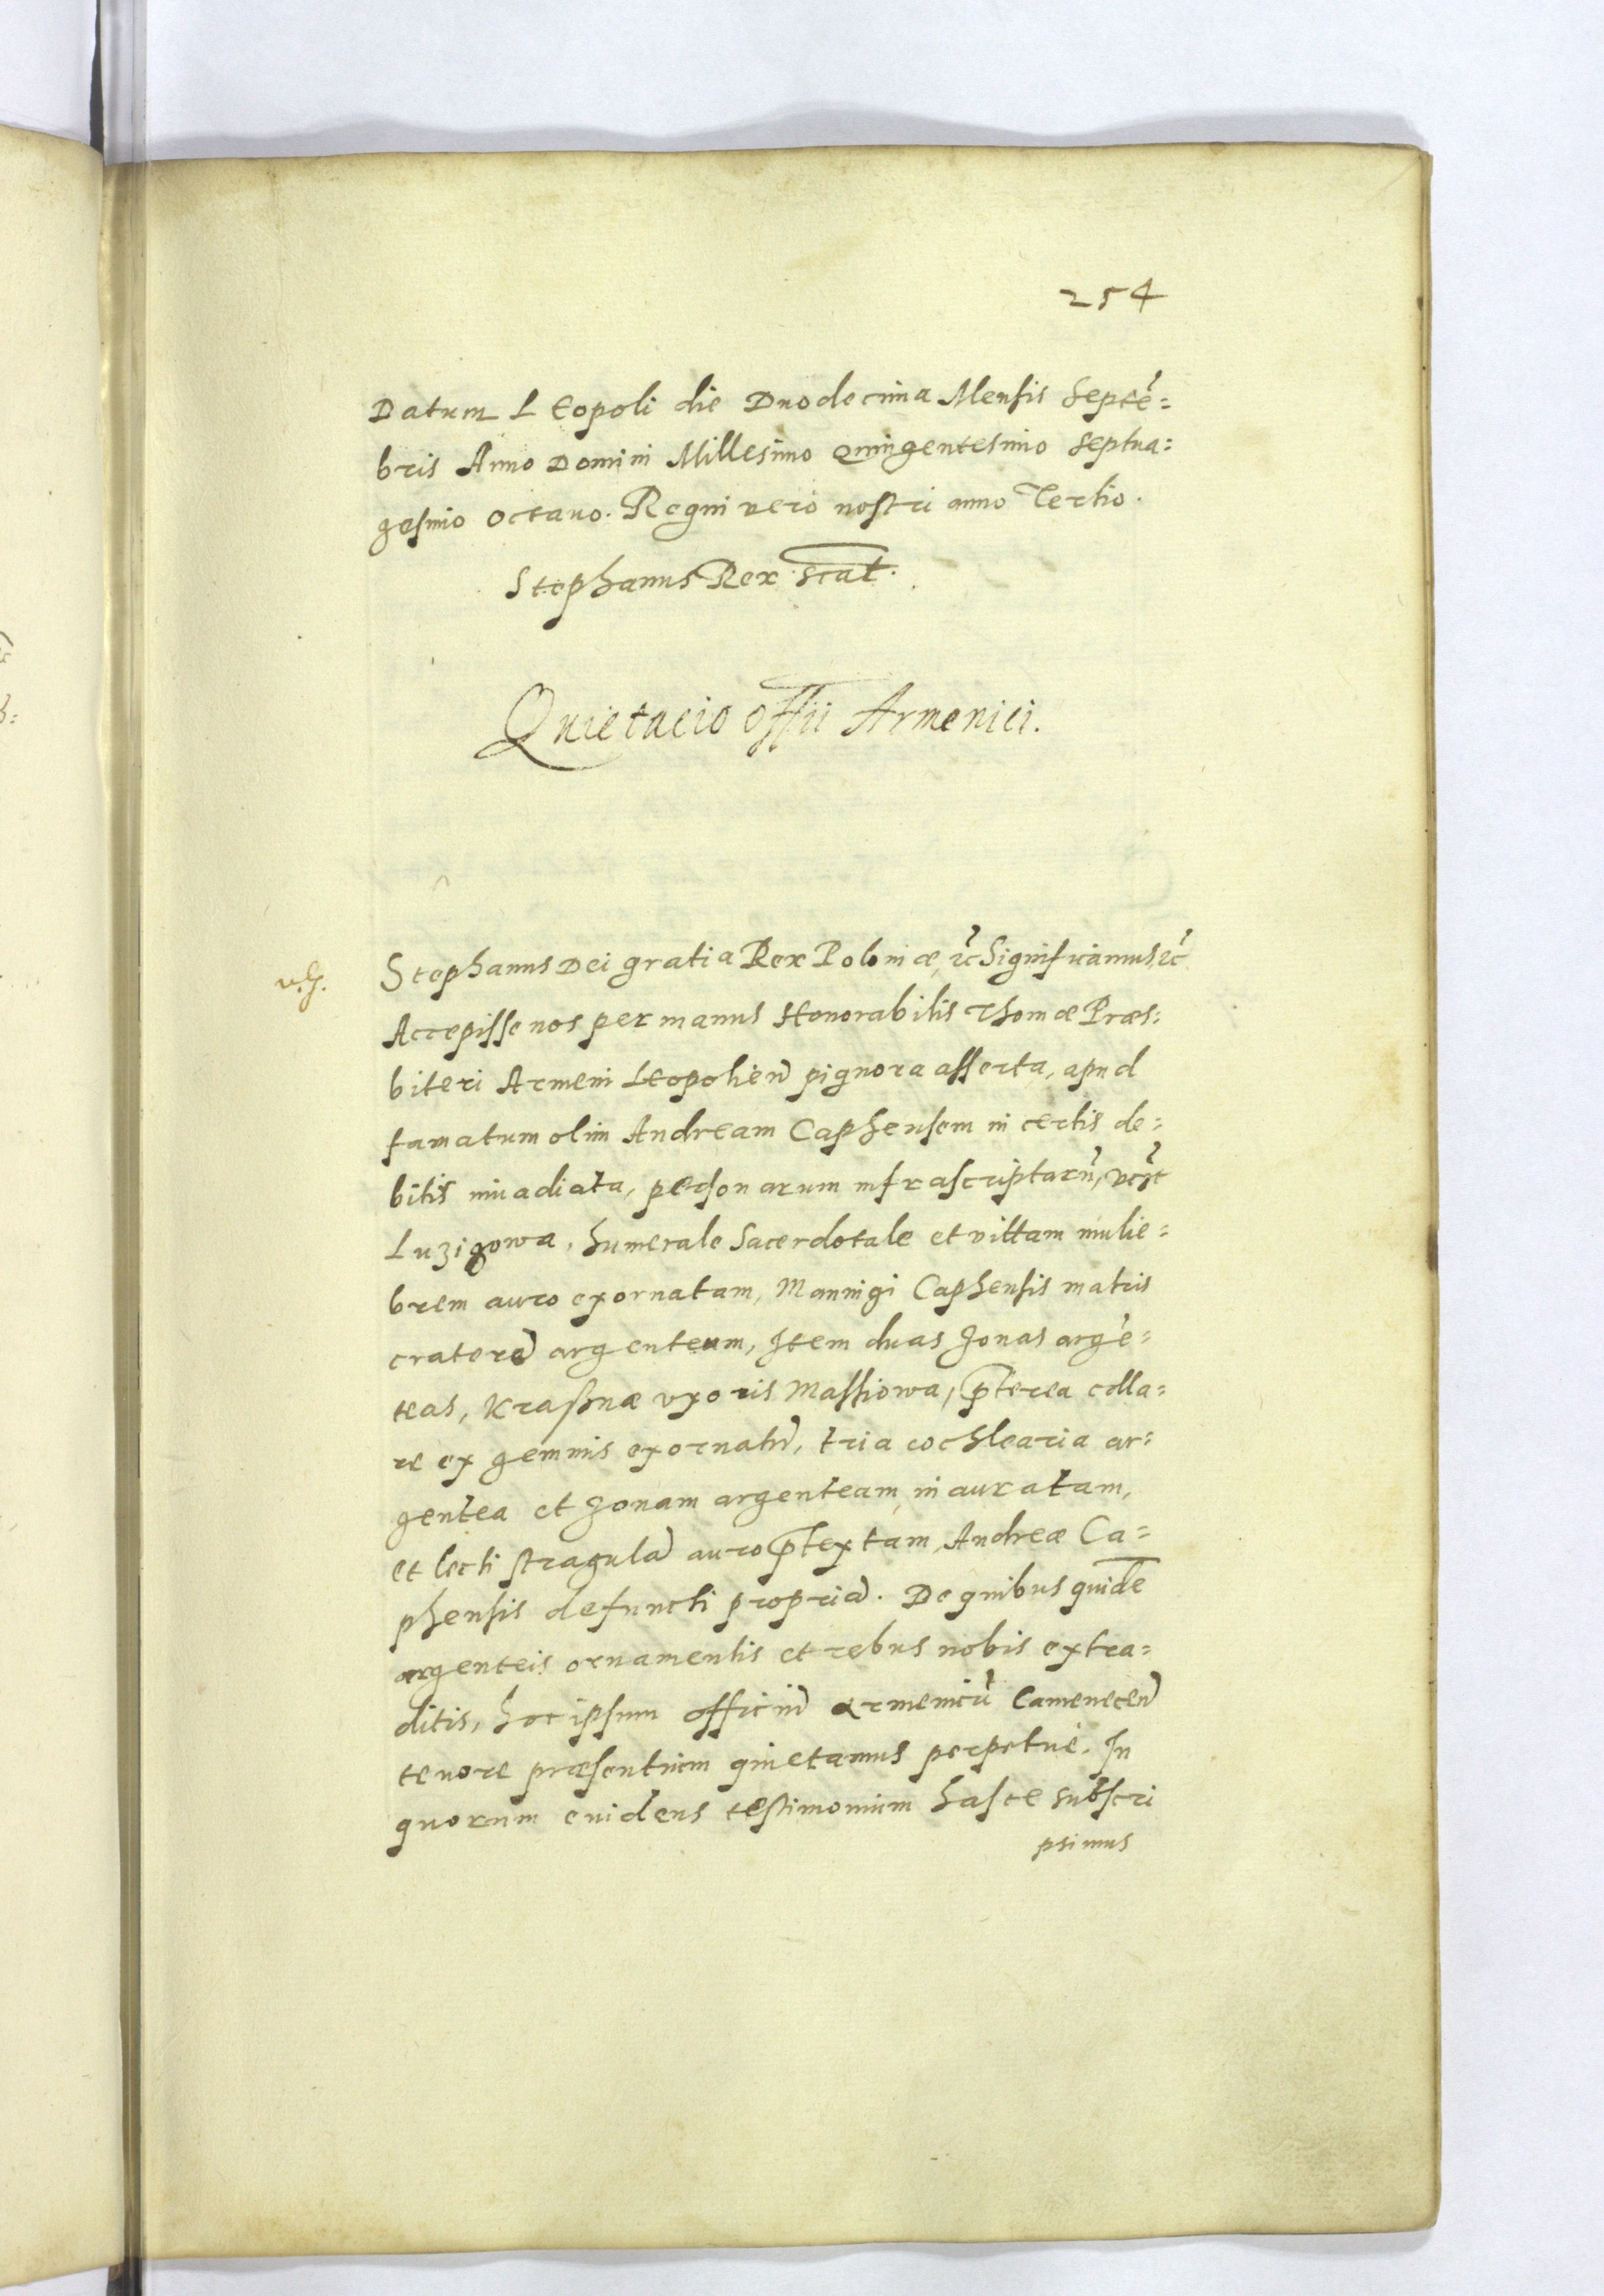 254
Datum Leopoli die Duodecima Mensis Septē=
bris Anno Domini Millesimo Quingentesimo Septua=
gesimo octauo. Regni vero nostri anno Tertio.
Stephanus Rex scat.
Quietacio offii Armenici.
Stephanus Dei gratia Rex Poloniæ, ēc Significamus ēc
Accepisse nos per manus Honorabilis Thomæ Præs=
biteri Armeni Leopolien̄ pignora asserta, apud
famatum olim Andream Caphensem in certis de=
bitis inuadiata, personarum infrascriptarū, vc̄t
Luzigowa, humerale Sacerdotale et vittam mulie=
brem auro exornatam, Mannigi Caphensis matris
craterē argenteum, Item duas zonas argē=
teas, Krassnæ vxoris Massiowa, p̄terea colla=
re ex gemmis exornatū, tria cochlearia ar=
gentea et zonam argenteam inauratam,
et lecti stragulā auro p̄textam, Andreæ Ca=
phensis defuncti propriā. De quibus quidē
argenteis ornamentis et rebus nobis extra=
ditis, hoc ipsum officiū armenicū Camenecen̄
tenore præsentium quietamus perpetuè. In
quorum euidens testimonium hasce subscri
psimus